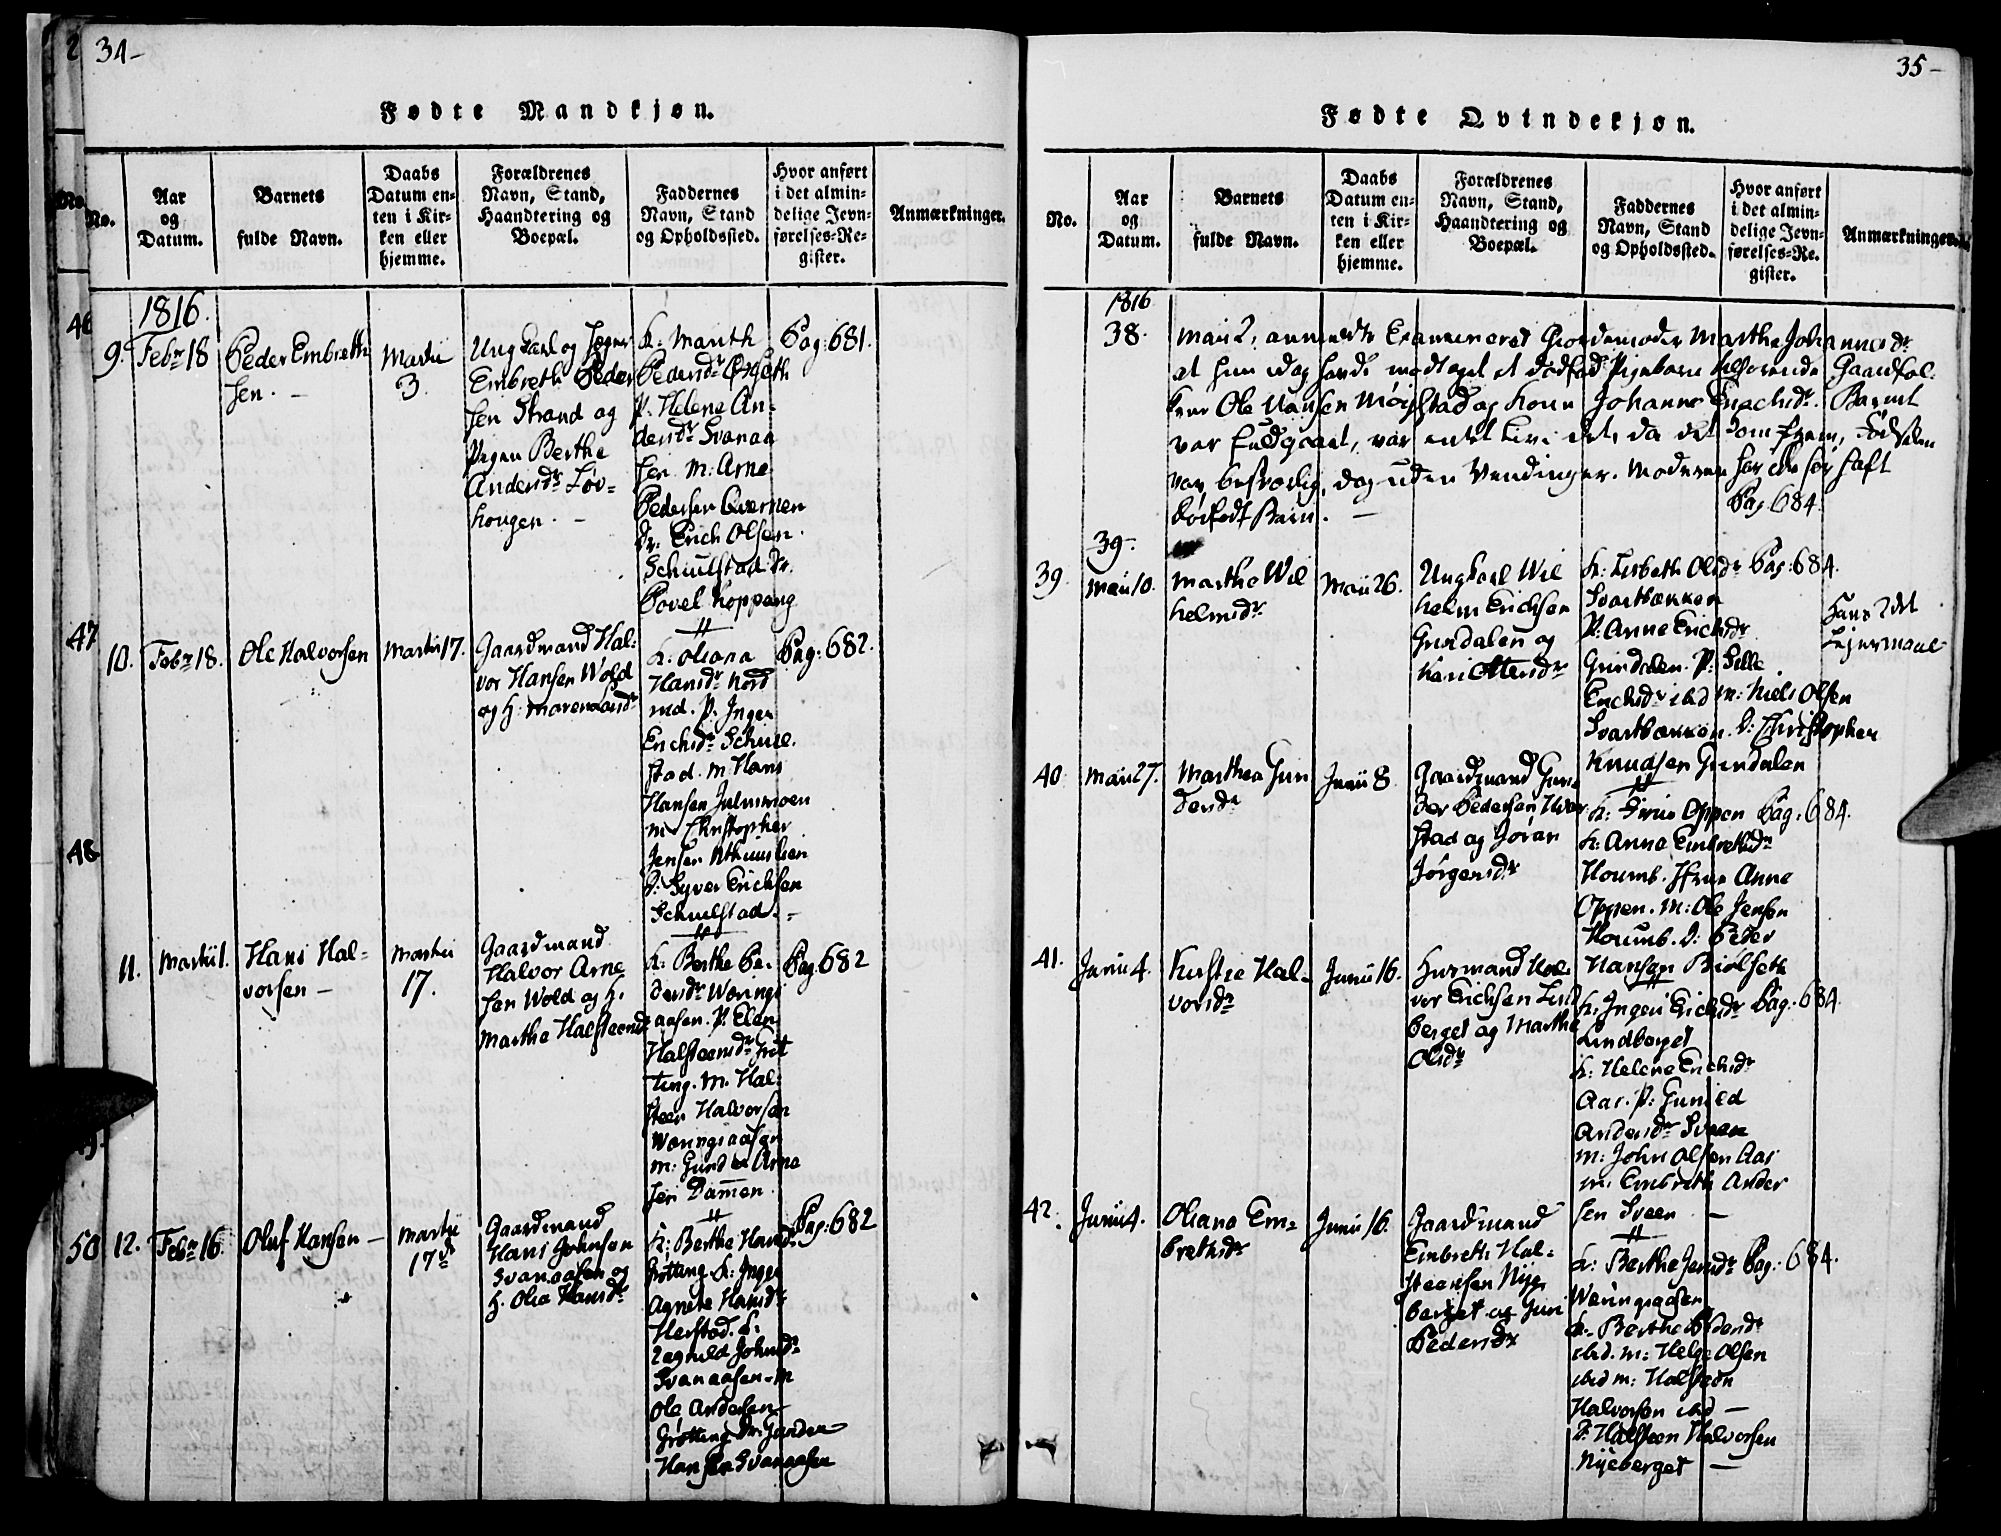 34-
Fødte Mandkjøn.
No.
Aar
og
Datum.
Barnets
fulde Navn.
Daabs
Datum en-
ten i Kir-
ken eller
hjemme.
Forældrenes
Navn, Stand,
Haandtering og
Boepæl.
Faddernes
Navn, Stand
og Opholdssted.
Hvor anført
i det almin-
delige Jevn-
førelses-Re-
gister.
Anmærkninger.
1816.
9.
Febr 18
Peder Embreth
sen. -
Martii
3.
Ungkarl og
Embreth Peder
sen Strand og
Pigen Berthe
Andersdr Løv=
hougen. -
K: Marith
Pedersdr
P. Helene An-
dersdr Svanaa
sen. M: Arne
Pedersen Qvernen
Dr. Erich Olsen
Schiulstad. Dr.
Povel Koppang
Pag: 681.
10.
Febr 18.
Ole Halvorsen
Martii 17.
Gaardmand Hal=
vor Hansen Wold
og H:
K: Oliana
Hansdr Nord
P. Inger
Erichsdr Schiul-
stad. M. Hans
Hansen Julusmoen
M Christopher
Jensen
D: Syver Erichsen
Schiulstad. -
Pag: 682.
11.
Martii 1.
Hans Hal-
vorsen -
Martii
17.
Gaardmand
Halvor Arne
sen Wold og H.
Marthe Halsteensdr
K: Berthe Pe-
dersdr Wænge
aasen. P. Elen
Halsteensdr Grøt
ting. M. Hal-
steen Halvorsen
Wænngsaasen
M: Gunder Arne
sen Dammen
Pag. 682
12.
Febr 16.
Oluf Hansen -
Martii
17de
Gaardmand
Hans Johnsen
Svanaasen og
H. Olia Hansdr
K: Berthe Hansdr
Grøtting K: Inger
Agnete Hansdr
Herstad. K:
Ragnild Johnsdr
Svanaasen. M
Ole Andersen
Grøtting Dr: Gunder
Hansen Svanaasen
Pag: 682
35-
Fødte Qvindekjøn.
No.
Aar
og
Datum.
Barnets
fulde Navn.
Daabs
Datum en-
ten i Kir-
ken eller
hjemme.
Forældrenes
Navn, Stand,
Haandtering og
Boepæl.
Faddernes
Navn, Stand
og Opholdssted.
Hvor anført
i det almin-
delige Jevn-
førelses-Re-
gister.
Anmærkninger.
1816
38.
Maii 2, anmeldte Examineret Giordemoder Marthe Johannesdr
at hun idag havde modtaget et dødfød Pigebarn tilhørende Gaardfol-
kene Ole Hansen Møistad og Kone Johanne Enochsdr. Barnet
var fuldgaaet, var intet Liv i det, da det kom frem, Fødselen
var besværlig, dog uden Vendinger. Moderen har ikke før haft
dødfødt Barn. -
Pag. 684.
39.
39.
Maii 10.
Marthe Wil
helmsdr
Maii 26.
Ungkarl Wil
helm Erichsen
Gundalen og
Kari Ottersdr
K: Lisbeth Olsdr
Svartbækken
P: Anne Erichsdr
Gundalen. P: Sille
Erichsdr ibd M: Niels Olsen
Svartbækken. D: Christopher
Knudsen Gundalen
Pag: 684.
Hans 2det
Lejermaal
40
Maii 27.
Marthea Gun
dersdr
Junii 8
Gaardmand Gun-
der Pedersen Hver
stad og Jøran
Jørgensdr
K: Frue Oppen
K: Anne Embrethsdr
Houmb. Jfrue Anne
Oppen. M: Ole Jensen
Houmb. D: Peder
Hansen Biølseth
Pag: 684.
41.
Junii 4.
Kirstie Hal-
vorsdr
Junii 16.
Huusmand Hal-
vor Erichsen Lind
berget og Marthe
Olsdr
K: Ingeri Erichsdr
Lindberget
K: Helene Erichsdr
Aas. P: Gunild
Andersdr Sveen
M: John Olsen Aas
M: Embreth Ander
sen Sveen -
Pag: 684
42.
Junii 4.
Oliana Em=
brethsdr
Junii 16.
Gaardmand
Embreth Hal=
steensen Nye
berget og Guri
Pedersdr
K: Berthe Jensdr
Wænngsaasen
K. Berthe Pedersdr
ibid. M: Helge Olsen
ibid M: Halsteen
Halvorsen ibid -
D: Halsteen Halvorsen
Nyeberget -
Pag: 684.
46
47
48
50